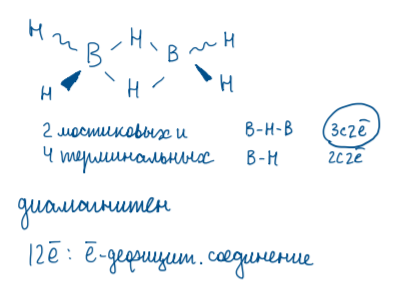 H H H
B B
H H H
2 мостиковых и B-H-B 3c2ē
4 терминальных B-H 2c2ē
диамагнитен
12ē: ē-дефицит. соединение